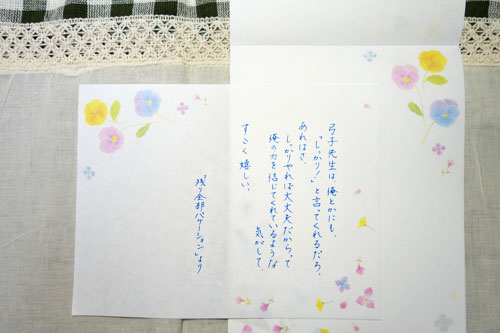 弓子先生は、俺とかにも、
"しっかり!"と言ってくれるだろ。
あれはさ、
しっかりやれば大丈夫だからって
俺の力を信じてくれているような
気がして、
すごく嬉しい。
『残り全部バケーション』より